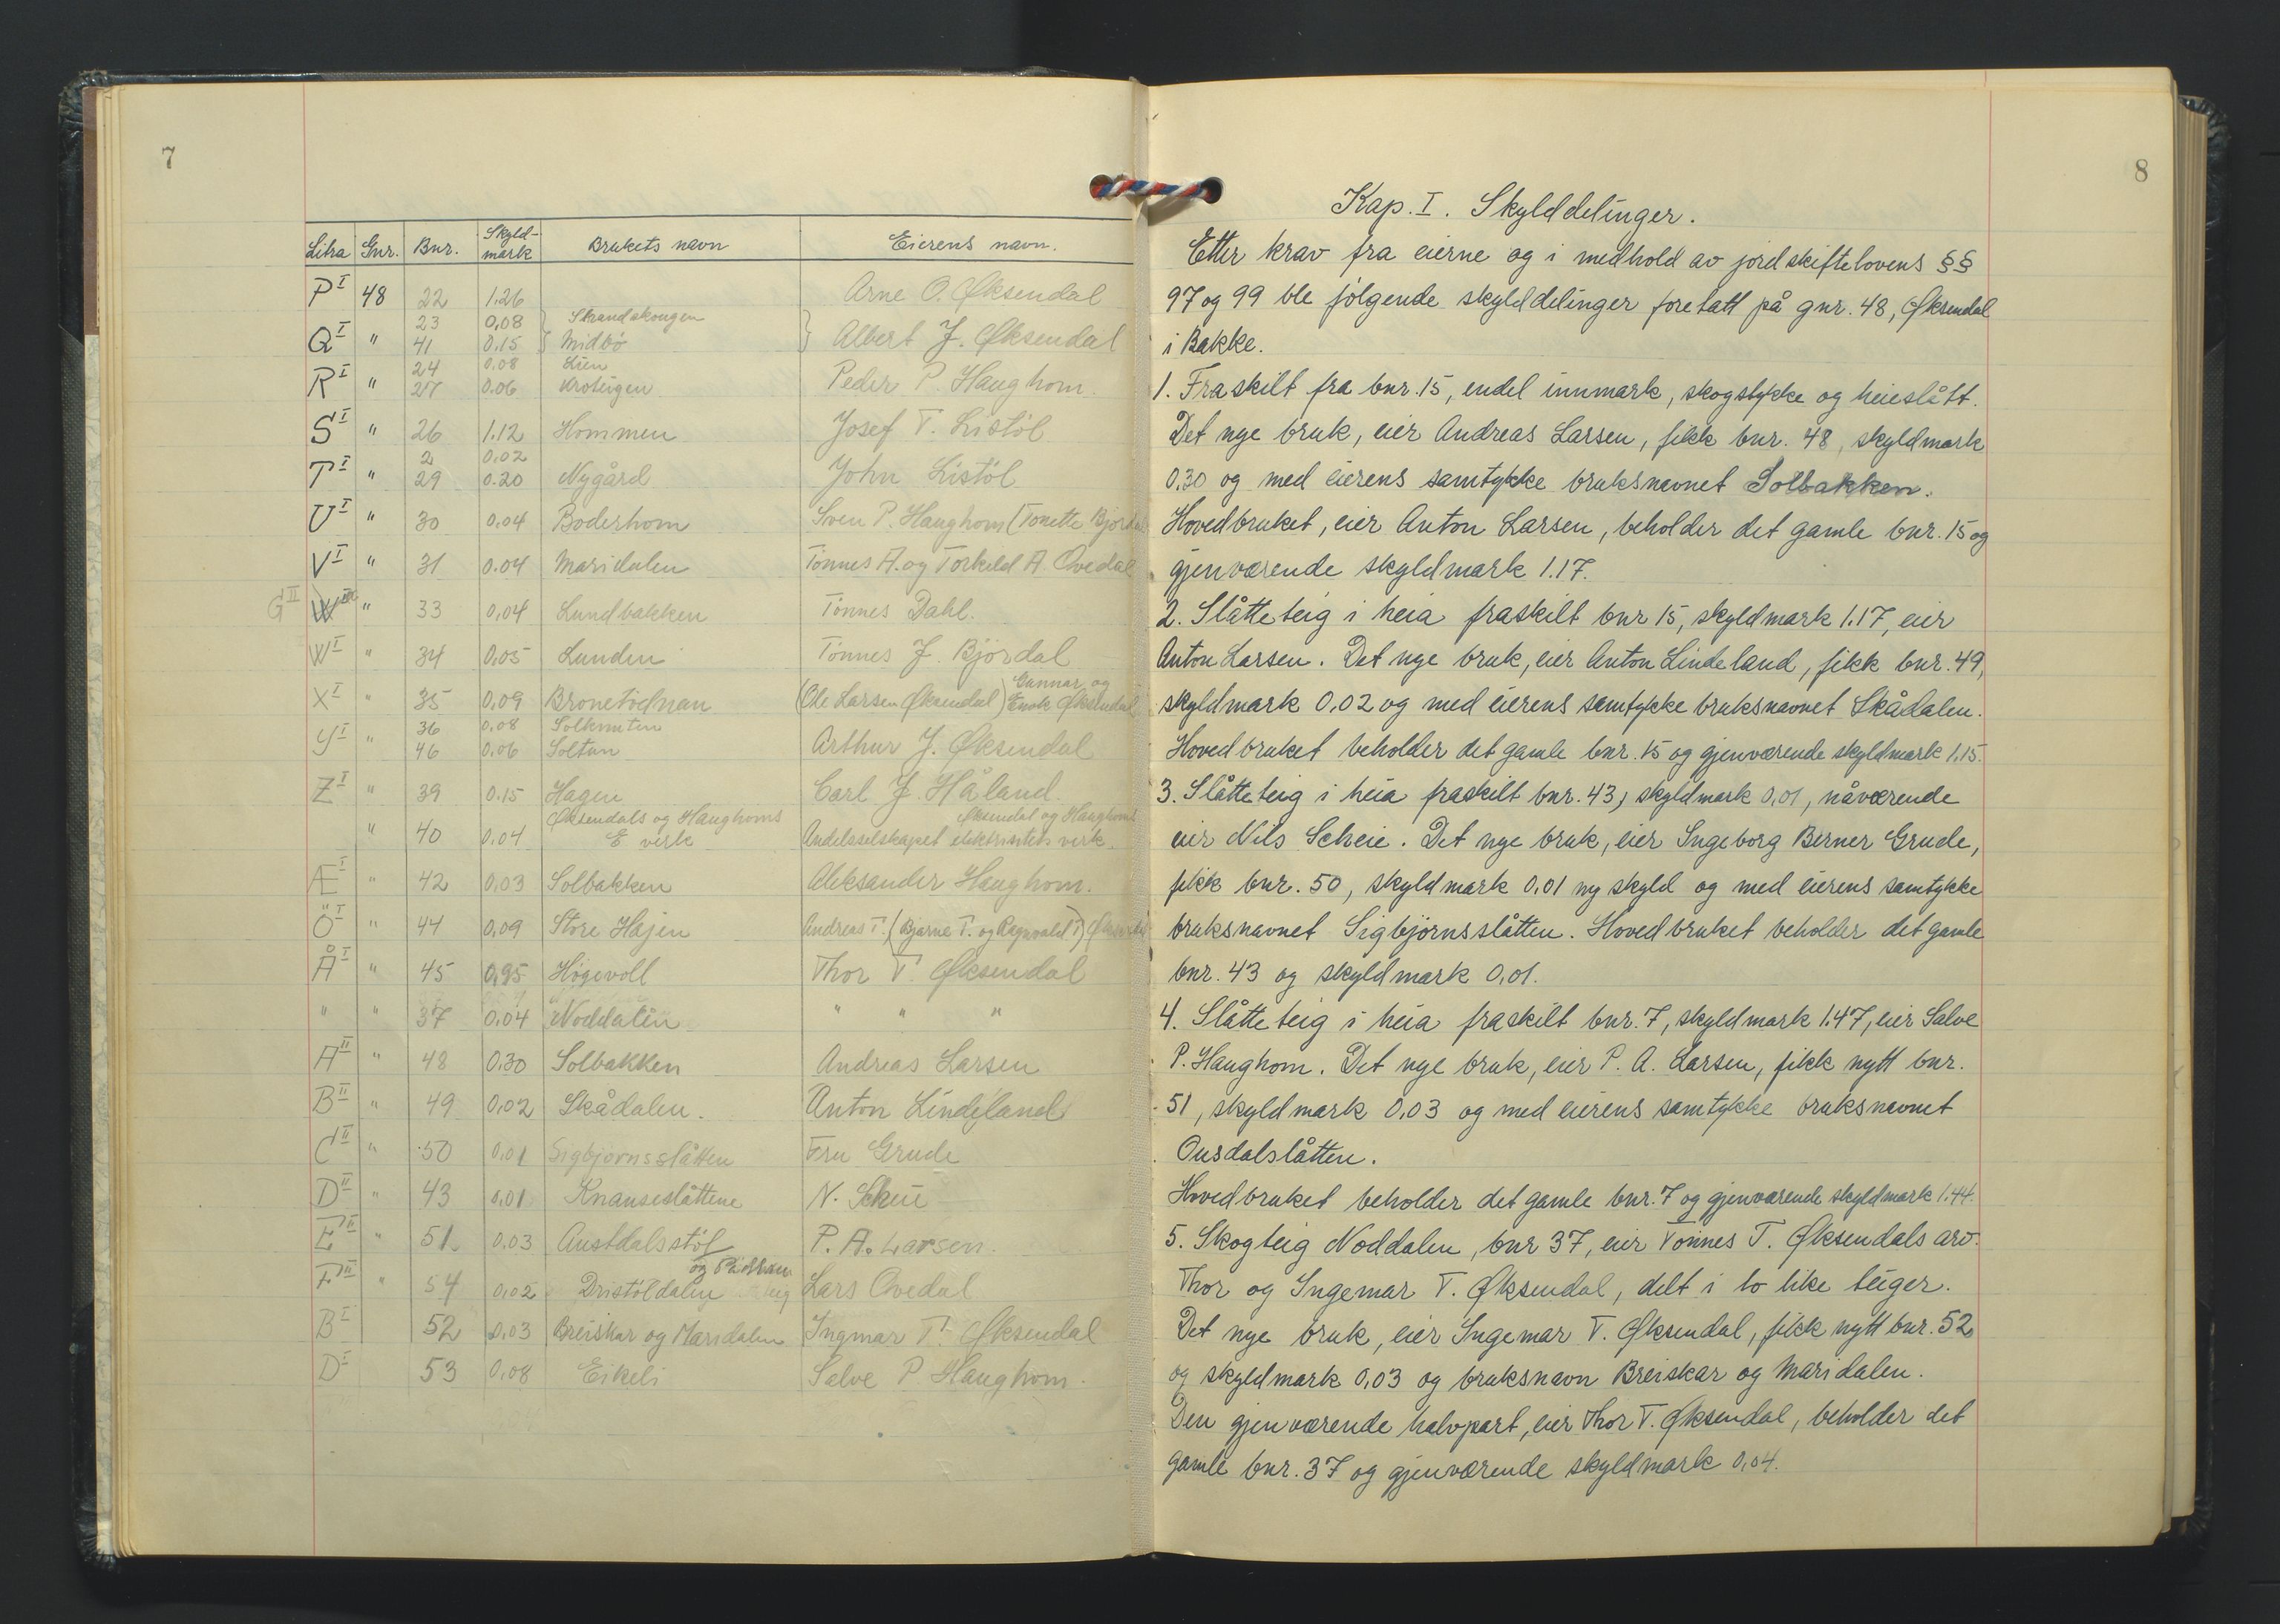 7
Litra Gnr. Bnr. Skyld-mark Brukets navn Eierens navn.
P I 48 22 1.26 Arne O. Øksendal
23 0,08 Strandskougen
Q I " 41 0.15 Midbö Albert J. Øksendal
24 0.08 Lien
R I " 27 0.06 Kroteigen Peder P. Haughom.
S I " 26 1.12 Hommen Josef T. Listöl
2 0.02
T I " 29 0.20 Nygård John Listöl
U I " 30 0,04 Boderhom Sven P. Haughom (Tonette Björdal
V I " 31 0.04 Maridalen Tönnes A. og Torkeld A. Ovedal
G II " 33 0,04 Lundbakken Tönnes Dahl.
W I " 34 0,05 Lunden Tönnes J. Björdal
Gunnar og
X I " 35 0,09 (Ole Larsen Øksendal) Enok Øksendal
36 0,08 Solknuten
Y I " 46 0,06 Soltun Arthur J. Øksendal
Z I " 39 0.15 Hagen Carl J. Håland.
Øksendals og Haughoms Øksendal og Haughoms
" 40 0,04 E verk Andelsselskapet elektrisitetsverk.
Æ I " 42 0,03 Solbakken Aleksander Haughom.
Ö I " 44 0,09 Store Hajen Andreas T. (Bjarne T. og Ragnvald T) Øksendal
Å I " 45 0,95 Högevoll Thor T. Øksendal
" " 37 0,04 Noddalen " " "
A II " 48 0,30 Solbakken Andreas Larsen
B II " 49 0,02 Skådalen. Anton Lindeland
C II " 50 0,01 Sigbjörnsslåtten Fru Grude
D II " 43 0,01 Knauseslåttene N. Scheie
E II " 51 0,03 Austdalsstöl P. A. Larsen.
F II " 54 0,02 Dristöldalen Lars Ovedal
B I 52 0,03 Breiskar og Maridalen Ingmar T. Øksendal
D I 53 0,08 Eikeli Salve P. Haughom.
8
Kap. I. Skylddelinger.
Etter krav fra eierne og i medhold av jordskiftelovens §§
97 og 99 ble fölgende skylddelinger foretatt på gnr. 48, Øksendal
i Bakke.
1. Fraskilt fra bnr. 15, endel innmark, skogstykke og heieslått.
Det nye bruk, eier Andreas Larsen, fikk bnr. 48, skyldmark
0,30 og med eierens samtykke bruksnavnet Solbakken.
Hovedbruket, eier Anton Larsen, beholder det gamle bnr. 15 og
gjenværende skyldmark 1.17.
2. Slåtteteig i heia fraskilt bnr 15, skyldmark 1.17, eier
Anton Larsen. Det nye bruk, eier Anton Lindeland, fikk bnr. 49,
skyldmark 0,02 og med eierens samtykke bruksnavnet Skådalen.
Hovedbruket beholder det gamle bnr. 15 og gjenværende skyldmark 1.15.
3. Slåtteteig i heia fraskilt bnr. 43, skyldmark 0,01, nåværende
eier Nils Scheie. Det nye bruk, eier Ingeborg Berner Grude,
fikk bnr. 50, skyldmark 0,01 ny skyld og med eierens samtykke
bruksnavnet Sigbjörnsslåtten. Hovedbruket beholder det gamle
bnr. 43 og skyldmark 0,01.
4. Slåtteteig i heia fraskilt bnr. 7, skyldmark 1.47, eier Salve
P. Haughom. Det nye bruk, eier P. A. Larsen, fikk nytt bnr.
51, skyldmark 0,03 og med eierens samtykke bruksnavnet
Ousdalslåtten.
Hovedbruket beholder det gamle bnr. 7 og gjenværende skyldmark 1.44.
5. Skogteig Noddalen, bnr 37, eier Tönnes T. Øksendals arv.
Thor og Ingemar T. Øksendal, delt i to like teiger.
Det nye bruk, eier Ingemar T. Øksendal, fikk nytt bnr. 52
og skyldmark 0,03 og bruksnavn Breiskar og Maridalen.
Den gjenværende halvpart, eier Thor T. Øksendal, beholder det
gamle bnr. 37 og gjenværende skyldmark 0,04.